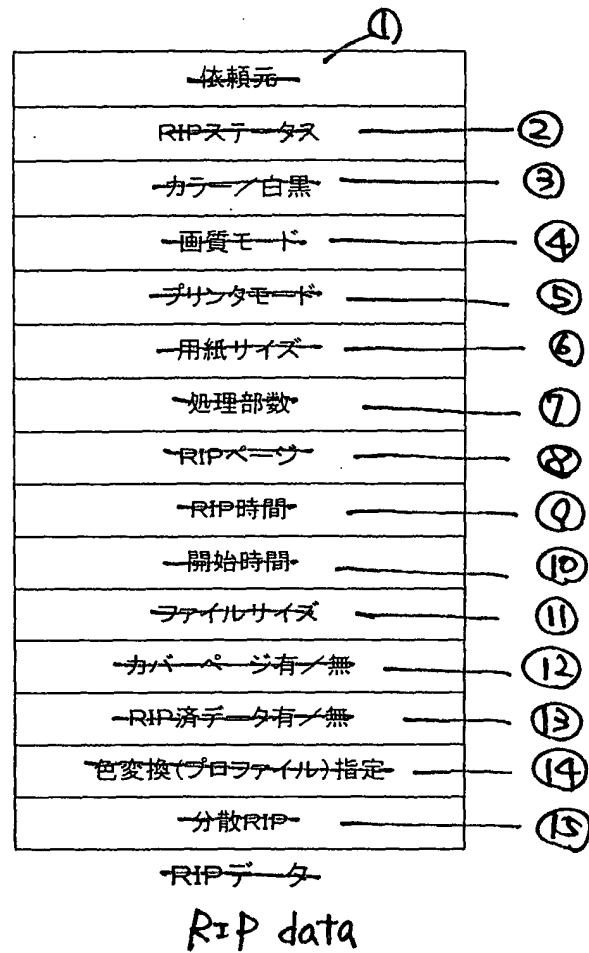 ①
依頼元
RIPステータス ②
カラー／白黒 ③
画質モード ④
プリンタモード ⑤
用紙サイズ ⑥
処理部数 ⑦
RIPページ ⑧
RIP時間 ⑨
開始時間 ⑩
ファイルサイズ ⑪
カバーページ有／無 ⑫
RIP済データ有／無 ⑬
色変換(プロファイル)指定 ⑭
分散RIP ⑮
RIPデータ
RIP data